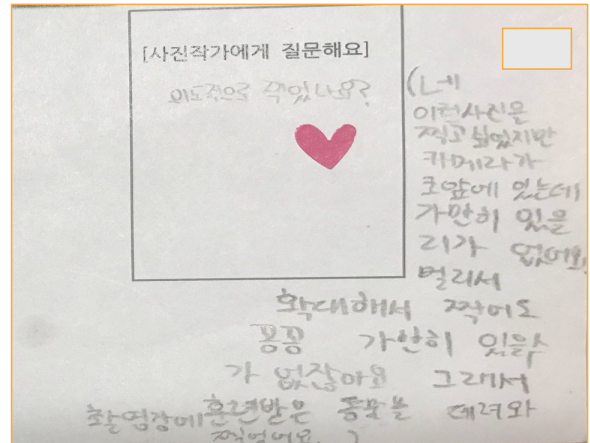 [사진작가에게 질문해요]
의도적으로 찍었나요?
(네
이런사진은
찍고싶었지만
카메라가
코앞에 있는데
가만히 있을
리가 없어요
멀리서
확대해서 찍어도
꽁꽁 가만히 있을수
가 없잖아요 그래서
촬영장에 훈련받은 동물을 데려와
찍었어요.)